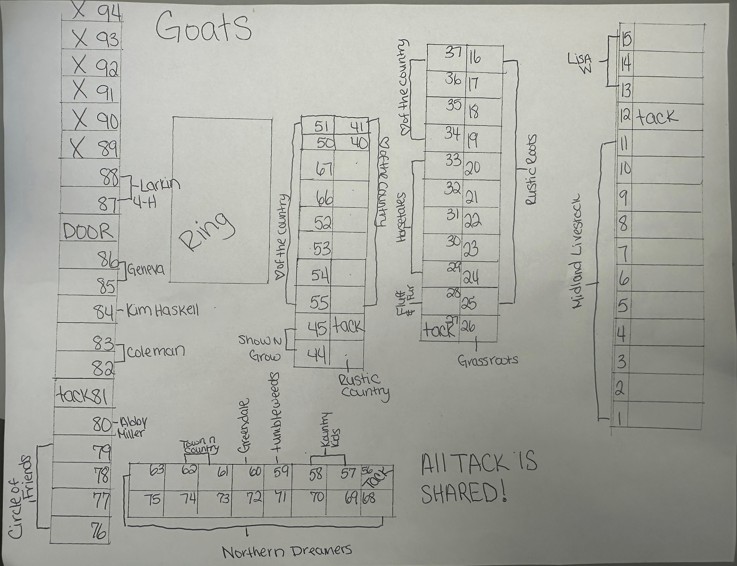 Goats
X 94
X 93
X 92
X 91
X 90
X 89
88
87
Larkin
4-H
DOOR
86
85
Geneva
84 - Kim Haskell
83
82
Coleman
tack 81
80 - Abby
Miller
79
78
77
76
Circle of
Friends
Ring
♡ of the Country
51 41
50 40
67
66
52
53
54
55
♡ of the Country
45 tack
44
Show N
Grow
Rustic
Country
♡ of the Country
37 16
36 17
35 18
34 19
33 20
32 21
31 22
30 23
29 24
28 25
tack 27 26
Horsetales
Fluff
& Fur
Rustic Roots
Grassroots
LISA
M
15
14
13
12 tack
11
10
9
8
7
6
5
4
3
2
1
Midland Livesrock
Town n
Country
Greendale
tumbleweeds
Kountry
Kids
63 62 61 60 59 58 57 56 TACK
75 74 73 72 71 70 69 68
Northern Dreamers
All TACK IS
SHARED!